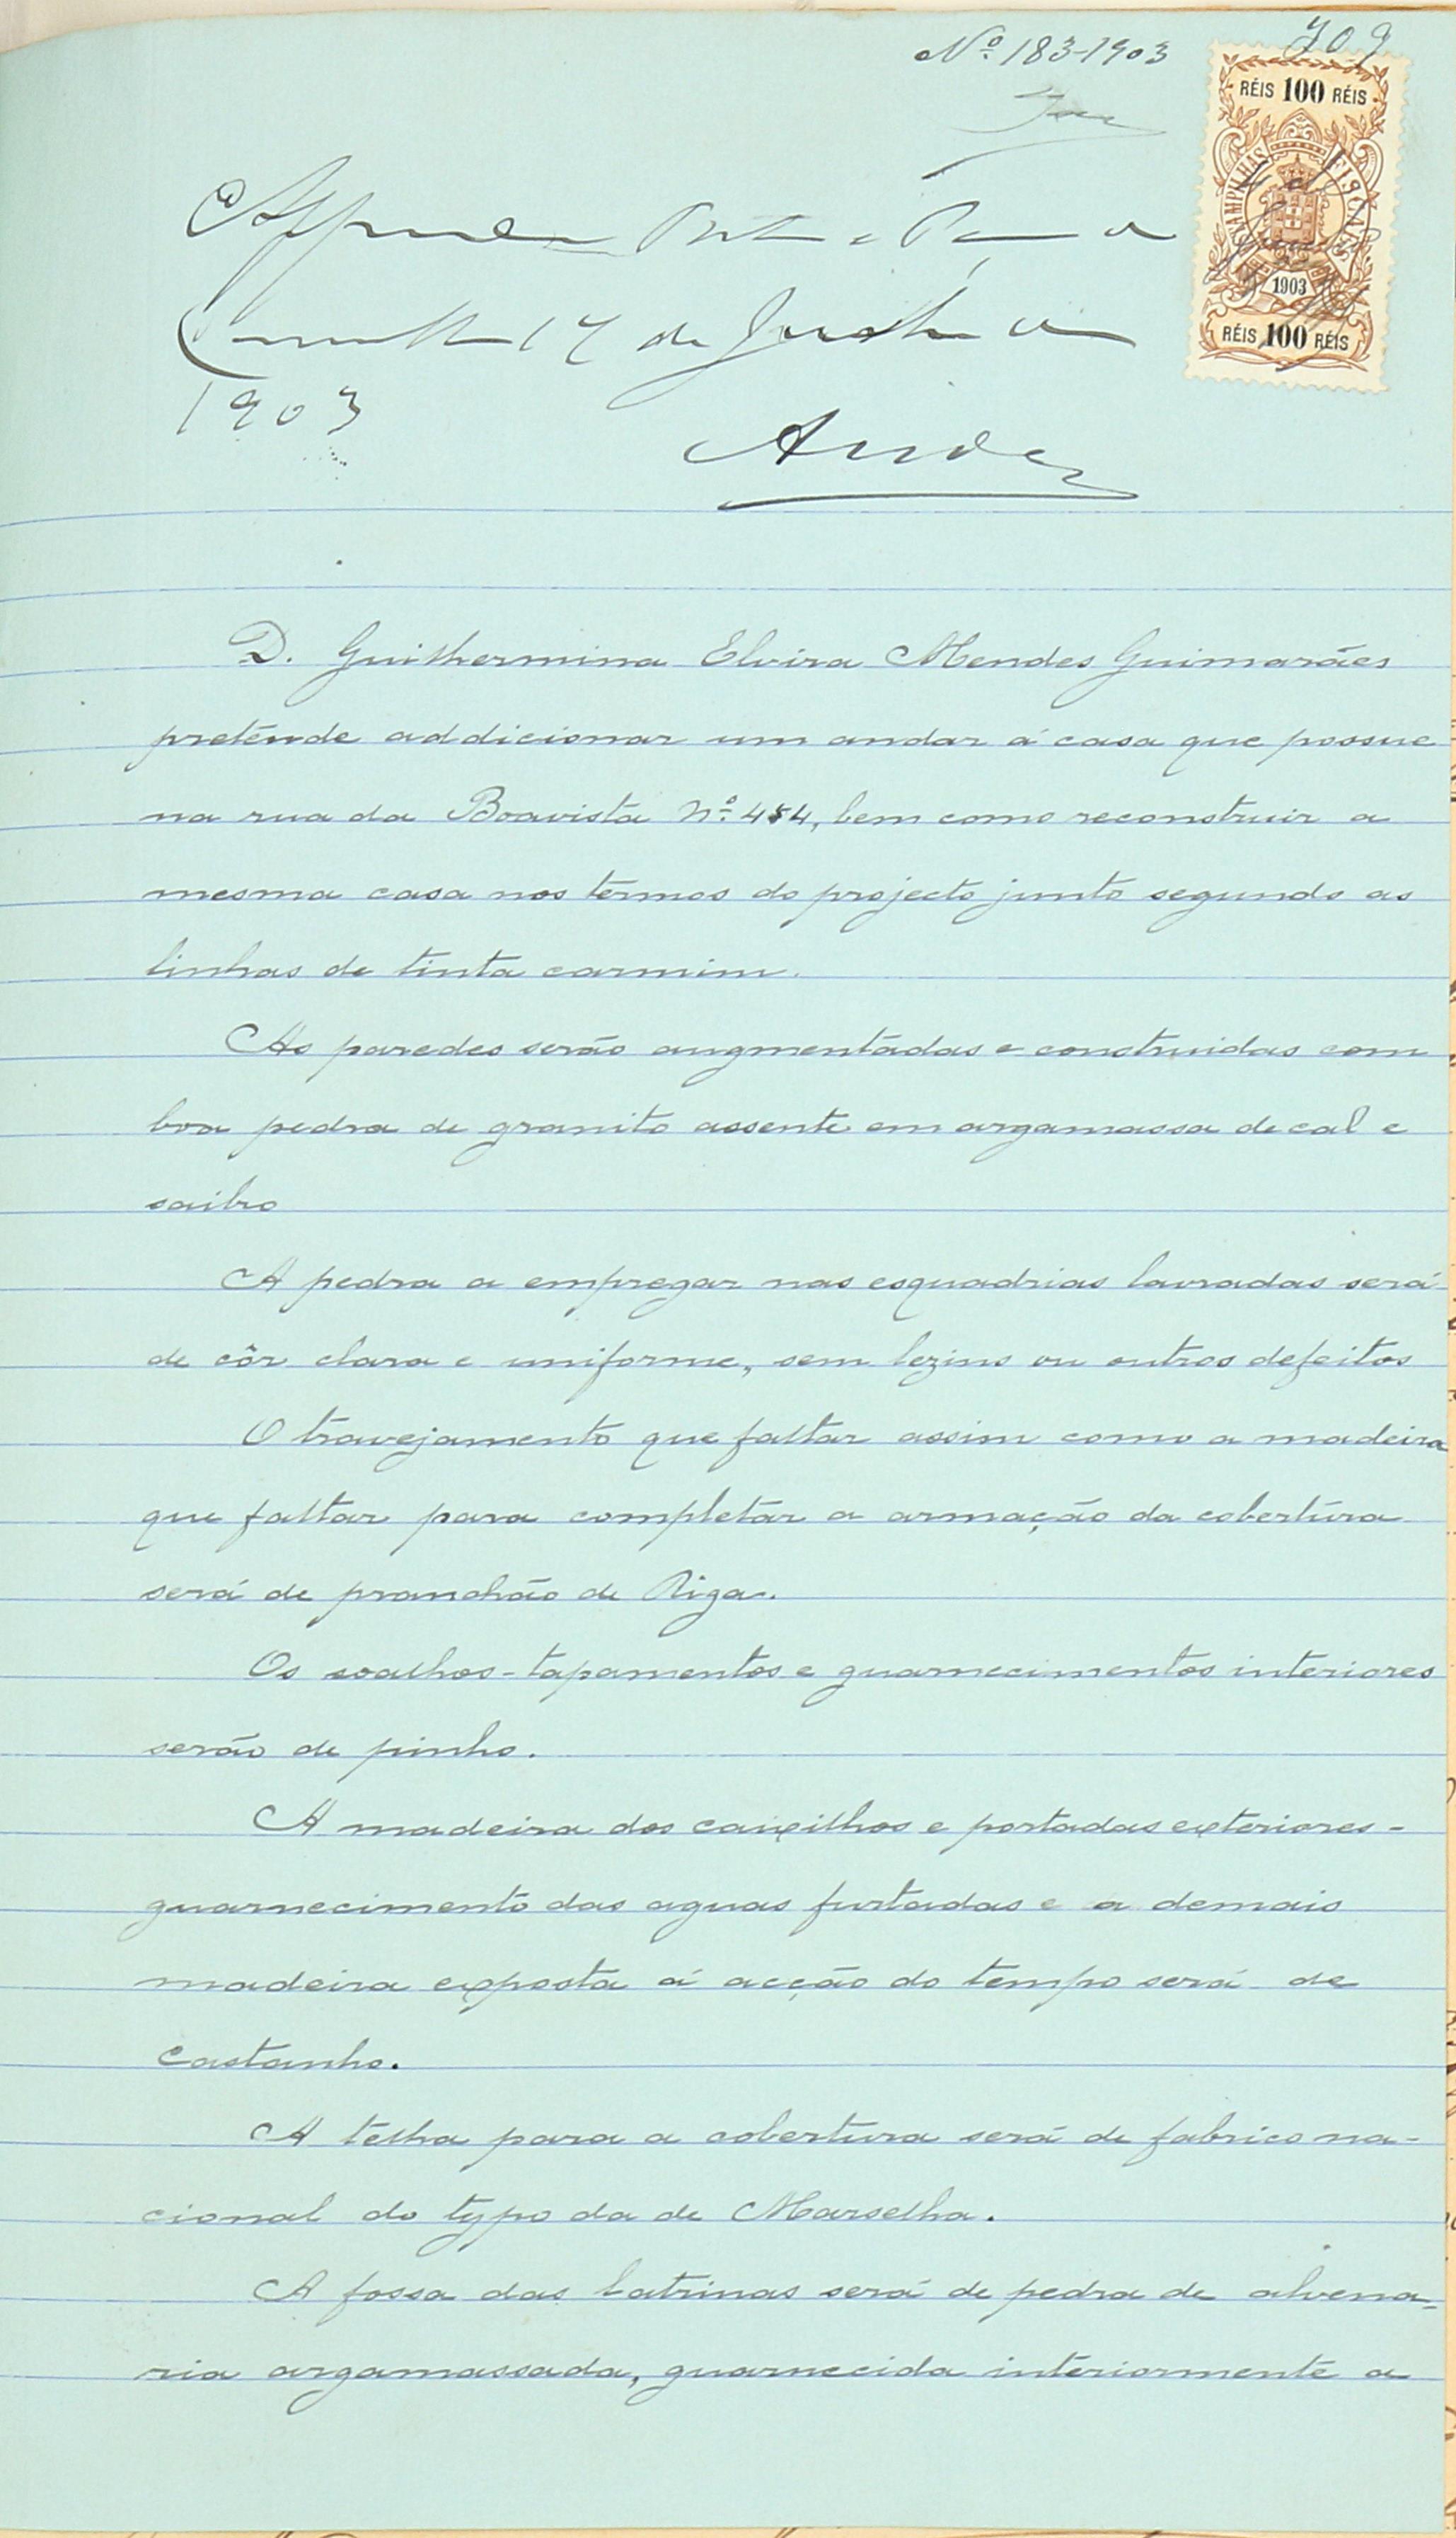 Nº 183-1903
709
RÉIS 100 RÉIS
ESTAMPILHAS FISCAES
1903
RÉIS 100 RÉIS
Approvada Porto e Paços do
Concelho 17 de Junho de
1903
D. Guilhermina Elvira Mendes Guimarães
preténde addicionar um andar á casa que possue
na rua da Boavista Nº 484, bem como reconstruir a
mesma casa nos termos do projecto junto segundo as
linhas de tinta carmim.
As paredes serão augmentádas e construidas com
boa pedra de granito assente em argamassa de cal e
saibro
A pedra a empregar nas esquadrias lavradas será
de côr clara e uniforme, sem lezins ou outros defeitos
O travejamento que faltar assim como a madeira
que faltar para completár a armação da cobertura
será de pranchão de Riga.
Os soalhos-tapamentos e guarnecimentos interiores
serão de pinho.
A madeira dos caixilhos e portadas exteriores-
guarnecimento das aguas furtadas e a demais
madeira exposta á acção do tempo será de
Castanho.
A telha para a cobertura será de fabrico na-
cional do typo da de Marselha.
A fossa das latrinas será de pedra de alvena-
ria argamassada, guarnecida interiormente a